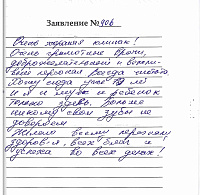 Заявление № 906
Очень хорошая клиника!
Очень грамотные врачи,
доброжелательный и вежли-
вый персонал всегда чистота.
Хожу сюда уже лет
и я и муж и ребенок
только здесь, больше
никому свои зубы не
доверяем
Желаем всему персоналу
здоровья, всех благ и
успеха во всех делах!